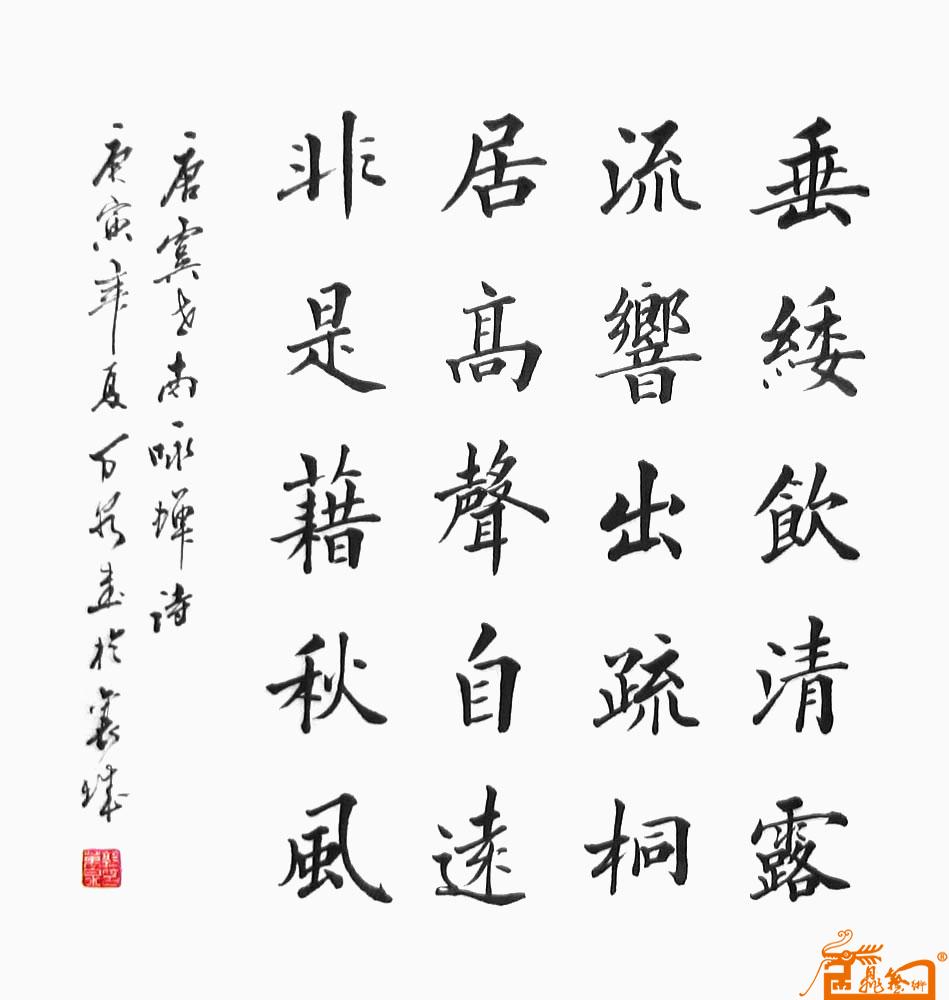 垂緌飲清露
流響出疏桐
居高聲自遠
非是藉秋風
唐虞世南咏蟬詩
庚寅年夏万泉書於襄城